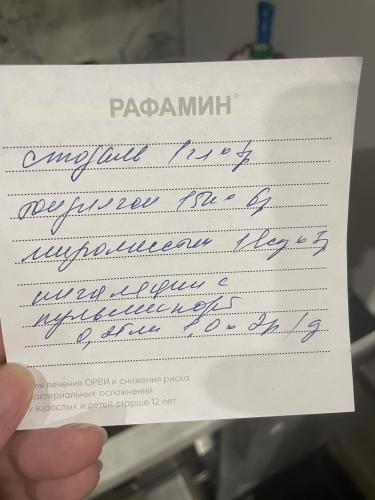 РАФАМИН®
стодаль 1 гл × 3р
тонзилгон 15к × 6р
мирамистин 1 × 3р
ингаляции с
пульмикорт
0,25 мл 1,0 × 2р/д
для лечения ОРВИ и снижения риска
бактериальных осложнений
у взрослых и детей старше 12 лет